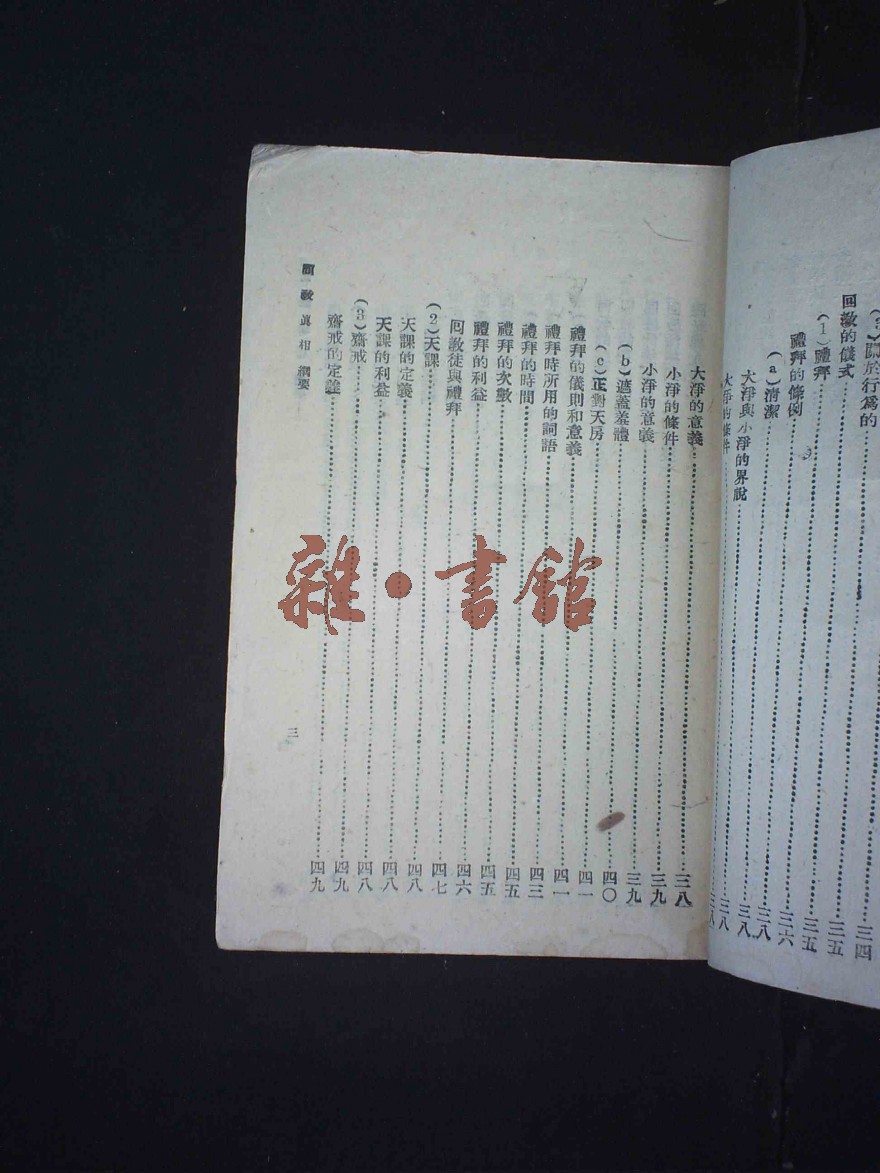 (3)關於行爲的……三四
回教的儀式……三五
(1)禮拜……三五
禮拜的條例……三六
(a)清潔……三八
大淨與小淨的界說……三八
大淨的條件……三八
大淨的意義……三八
小淨的條件……三九
小淨的意義……三九
(b)遮蓋羞體……四〇
(c)正對天房……四一
禮拜的儀則和意義……四一
禮拜時所用的詞語……四三
禮拜的時間……四五
禮拜的次數……四五
禮拜的利益……四六
回教徒與禮拜……四七
(2)天課……四八
天課的定義……四八
天課的利益……四八
(3)齋戒……四九
齋戒的定義……四九
回教眞相 綱要
三
雜·書館